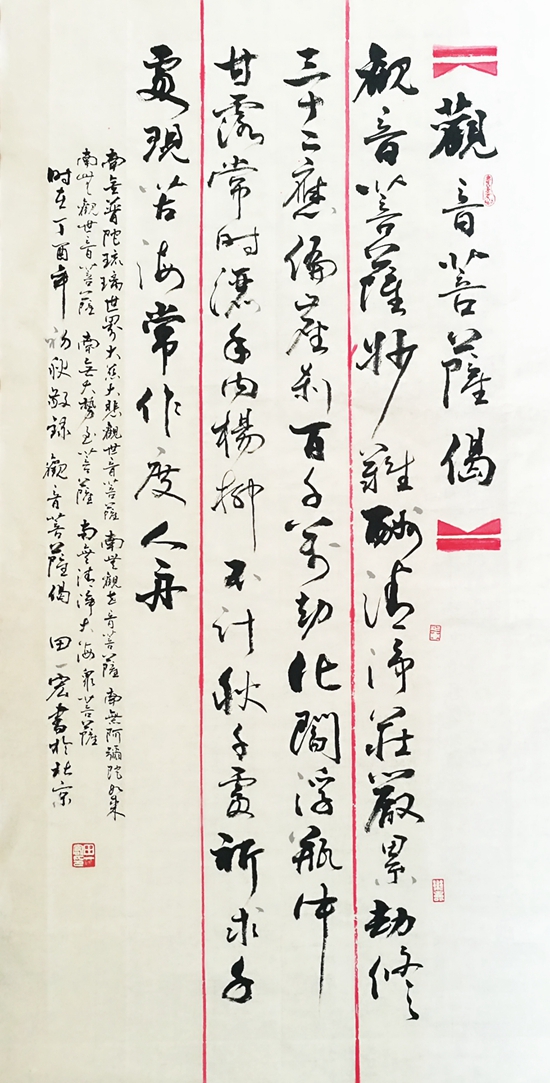 觀音菩薩偈
觀音菩薩妙難酬清淨莊嚴累劫修
三十二應徧塵刹百千萬劫化閻浮瓶中
甘露常时灑手内楊柳不計秋千處祈求千
處現苦海常作度人舟
南無普陀琉璃世界大慈大悲觀世音菩薩 南無觀世音菩薩 南無阿彌陀如來
南無觀世音菩薩 南無大勢至菩薩 南無清淨大海眾菩薩
时在丁酉年初秋敬録觀音菩薩偈 田一宏書於北京